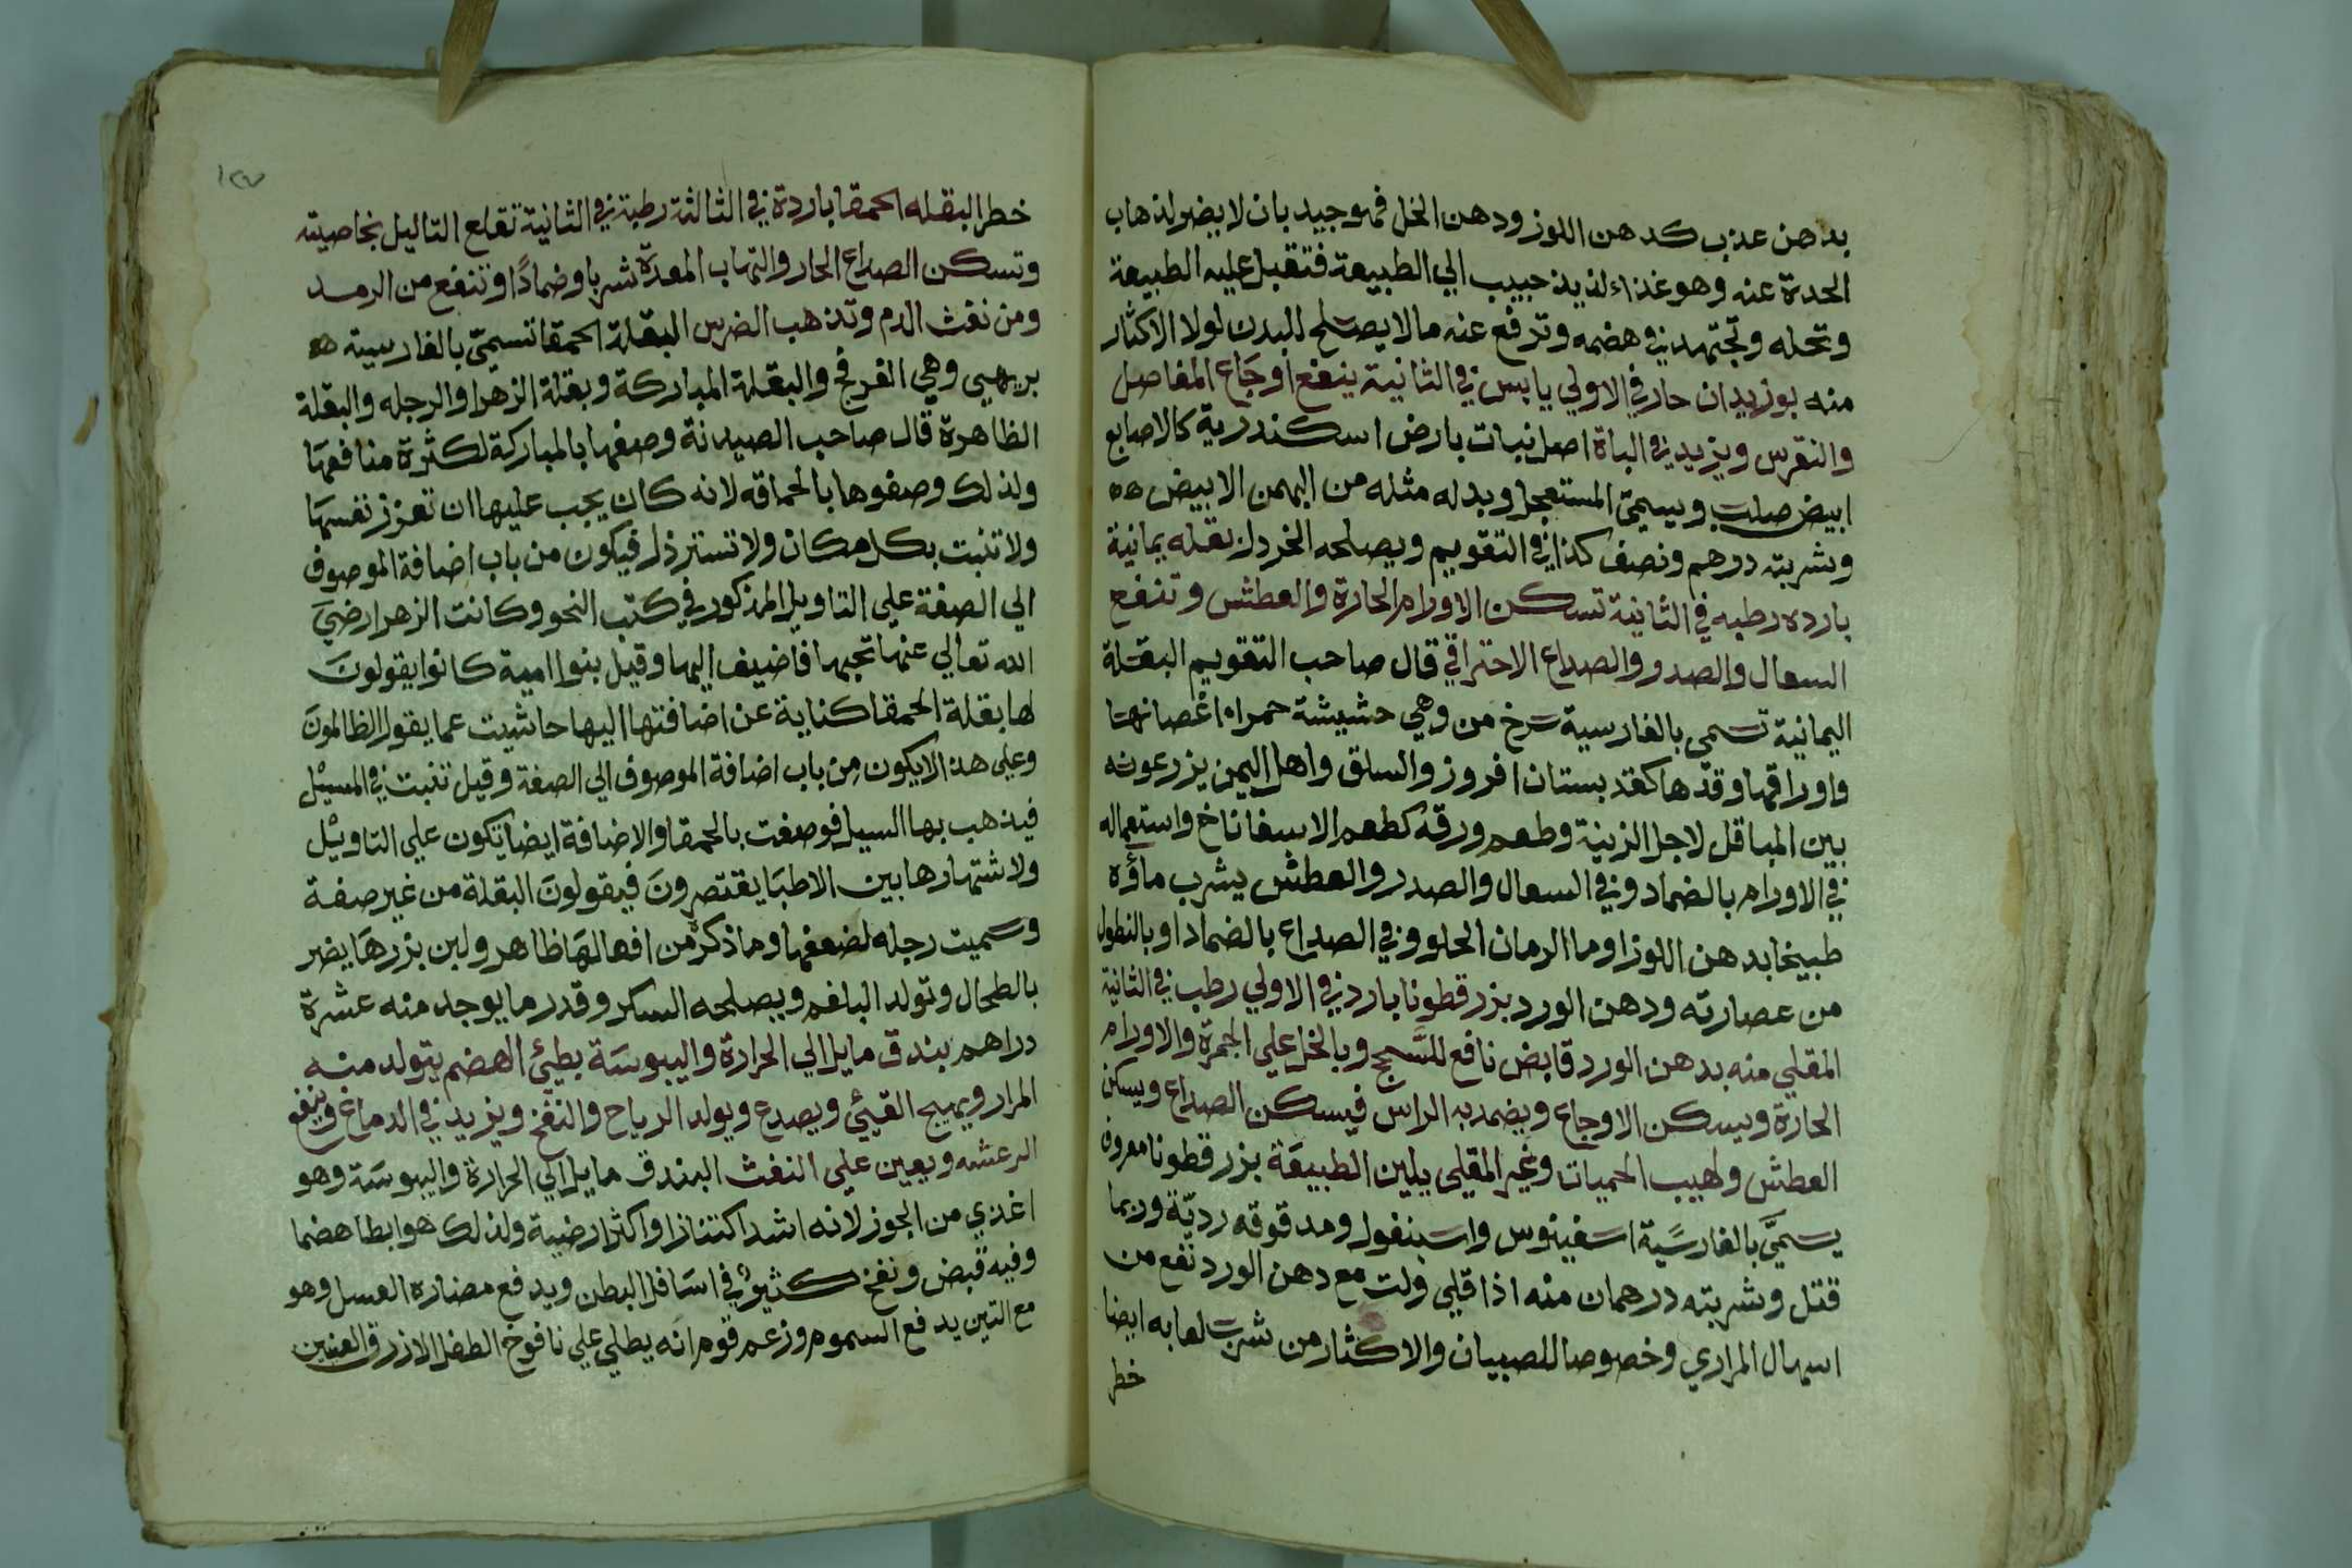 بدهن عذب كدهن اللوز ودهن الخل فهو جيد بان لا يضر لذهاب
الحدة عنه وهو غذاء لذيذ حبيب الي الطبيعة فتقبل عليه الطبيعة
وتحله وتجتهد في هضمه وتدفع عنه ما لا يصلح للبدن لولا الاكثار
منه بوزيدان حار في الاولي يابس في الثانية ينفع اوجاع المفاصل
والنقرس ويزيد في الباة اصل نبات بارض اسكندرية كالاصابع
ابيض صلب ويسمي المستعجل وبدله مثله من البهمن الابيض هه
وشربته درهم ونصف كذا في التقويم ويصلحه الخردل بقله يمانية
بارده رطبه في الثانية تسكن الاورام الحارة والعطش وتنفع
السعال والصدر والصداع الاحتراقي قال صاحب التقويم البقلة
اليمانية تسمي بالفارسية سرخ من وهي حشيشة حمراء اغصانها
واوراقها وقدها كقد بستان افروز والسلق واهل اليمن يزرعونه
بين المباقل لاجل الزينة وطعم ورقه كطعم الاسفاناخ واستعماله
في الاورام بالضماد وفي السعال والصدر والعطش يشرب ماؤه
طبيخا بدهن اللوز او ما الرمان الحلو وفي الصداع بالضماد او بالنطول
من عصارته ودهن الورد بزر قطونا بارد في الاولي رطب في الثانية
المقلي منه بدهن الورد قابض نافع للسحج وبالخل علي الجمرة والاورام
الحارة ويسكن الاوجاع ويضمد به الراس فيسكن الصداع ويسكن
العطش ولهيب الحميات وغير المقلي يلين الطبيعة بزر قطونا معروف
يسمي بالفارسية اسفينوس واسبنغول ومدقوقه رديّة وربما
قتل وشربته درهمان منه اذا قلي ولت مع دهن الورد نفع من
اسهال المراري وخصوصا للصبيان والاكثار من شرب لعابه ايضا
خطر
١٢٧
خطر البقله الحمقا باردة في الثالثة رطبة في الثانية تقلع التاليل بخاصيته
وتسكن الصداع الحار والتهاب المعدة شربا وضمادًا وتنفع من الرمد
ومن نفث الدم وتذهب الضرس البقلة الحمقا تسمي بالفارسية هه
بربهي وهي الفرفخ والبقلة المباركة وبقلة الزهرا والرجله والبقلة
الظاهرة قال صاحب الصيدنة وصفها بالمباركة لكثرة منافعها
ولذلك وصفوها بالحماقه لانه كان يجب عليها ان تعزز نفسها
ولا تنبت بكل مكان ولا تسترذل فيكون من باب اضافة الموصوف
الي الصفة علي التاويل المذكور في كتب النحو وكانت الزهرا رضي
الله تعالي عنها تحبها فاضيف اليها وقيل بنوا امية كانوا يقولون
لها بقلة الحمقا كناية عن اضافتها اليها حاشيت عما يقول الظالمون
وعلي هذا لا يكون من باب اضافة الموصوف الي الصفة وقيل تنبت في المسيل
فيذهب بها السيل فوصفت بالحمقا والاضافة ايضا تكون علي التاويل
ولاشتهارها بين الاطبا يقتصرون فيقولون البقلة من غير صفة
وسميت رجله لضعفها وما ذكره من افعالها ظاهر ولبن بزرها يضر
بالطحال وتولد البلغم ويصلحه السكر وقدر ما يوجد منه عشرة
دراهم بندق مايل الي الحرارة واليبوسة بطيئ الهضم يتولد منه
المرار ويهيج القيئ ويصدع ويولد الرياح والنفخ ويزيد في الدماغ وينفع
الرعشه ويعين علي النفث البندق مايل الي الحرارة واليبوسة وهو
اغذي من الجوز لانه اشد اكتنازا واكثر ارضية ولذلك هو ابطا هضما
وفيه قبض ونفخ كثير في اسافل البطن ويدفع مضاره العسل وهو
مع التين يدفع السموم وزعم قوم انه يطلي علي نافوخ الطفل الازرق العنين